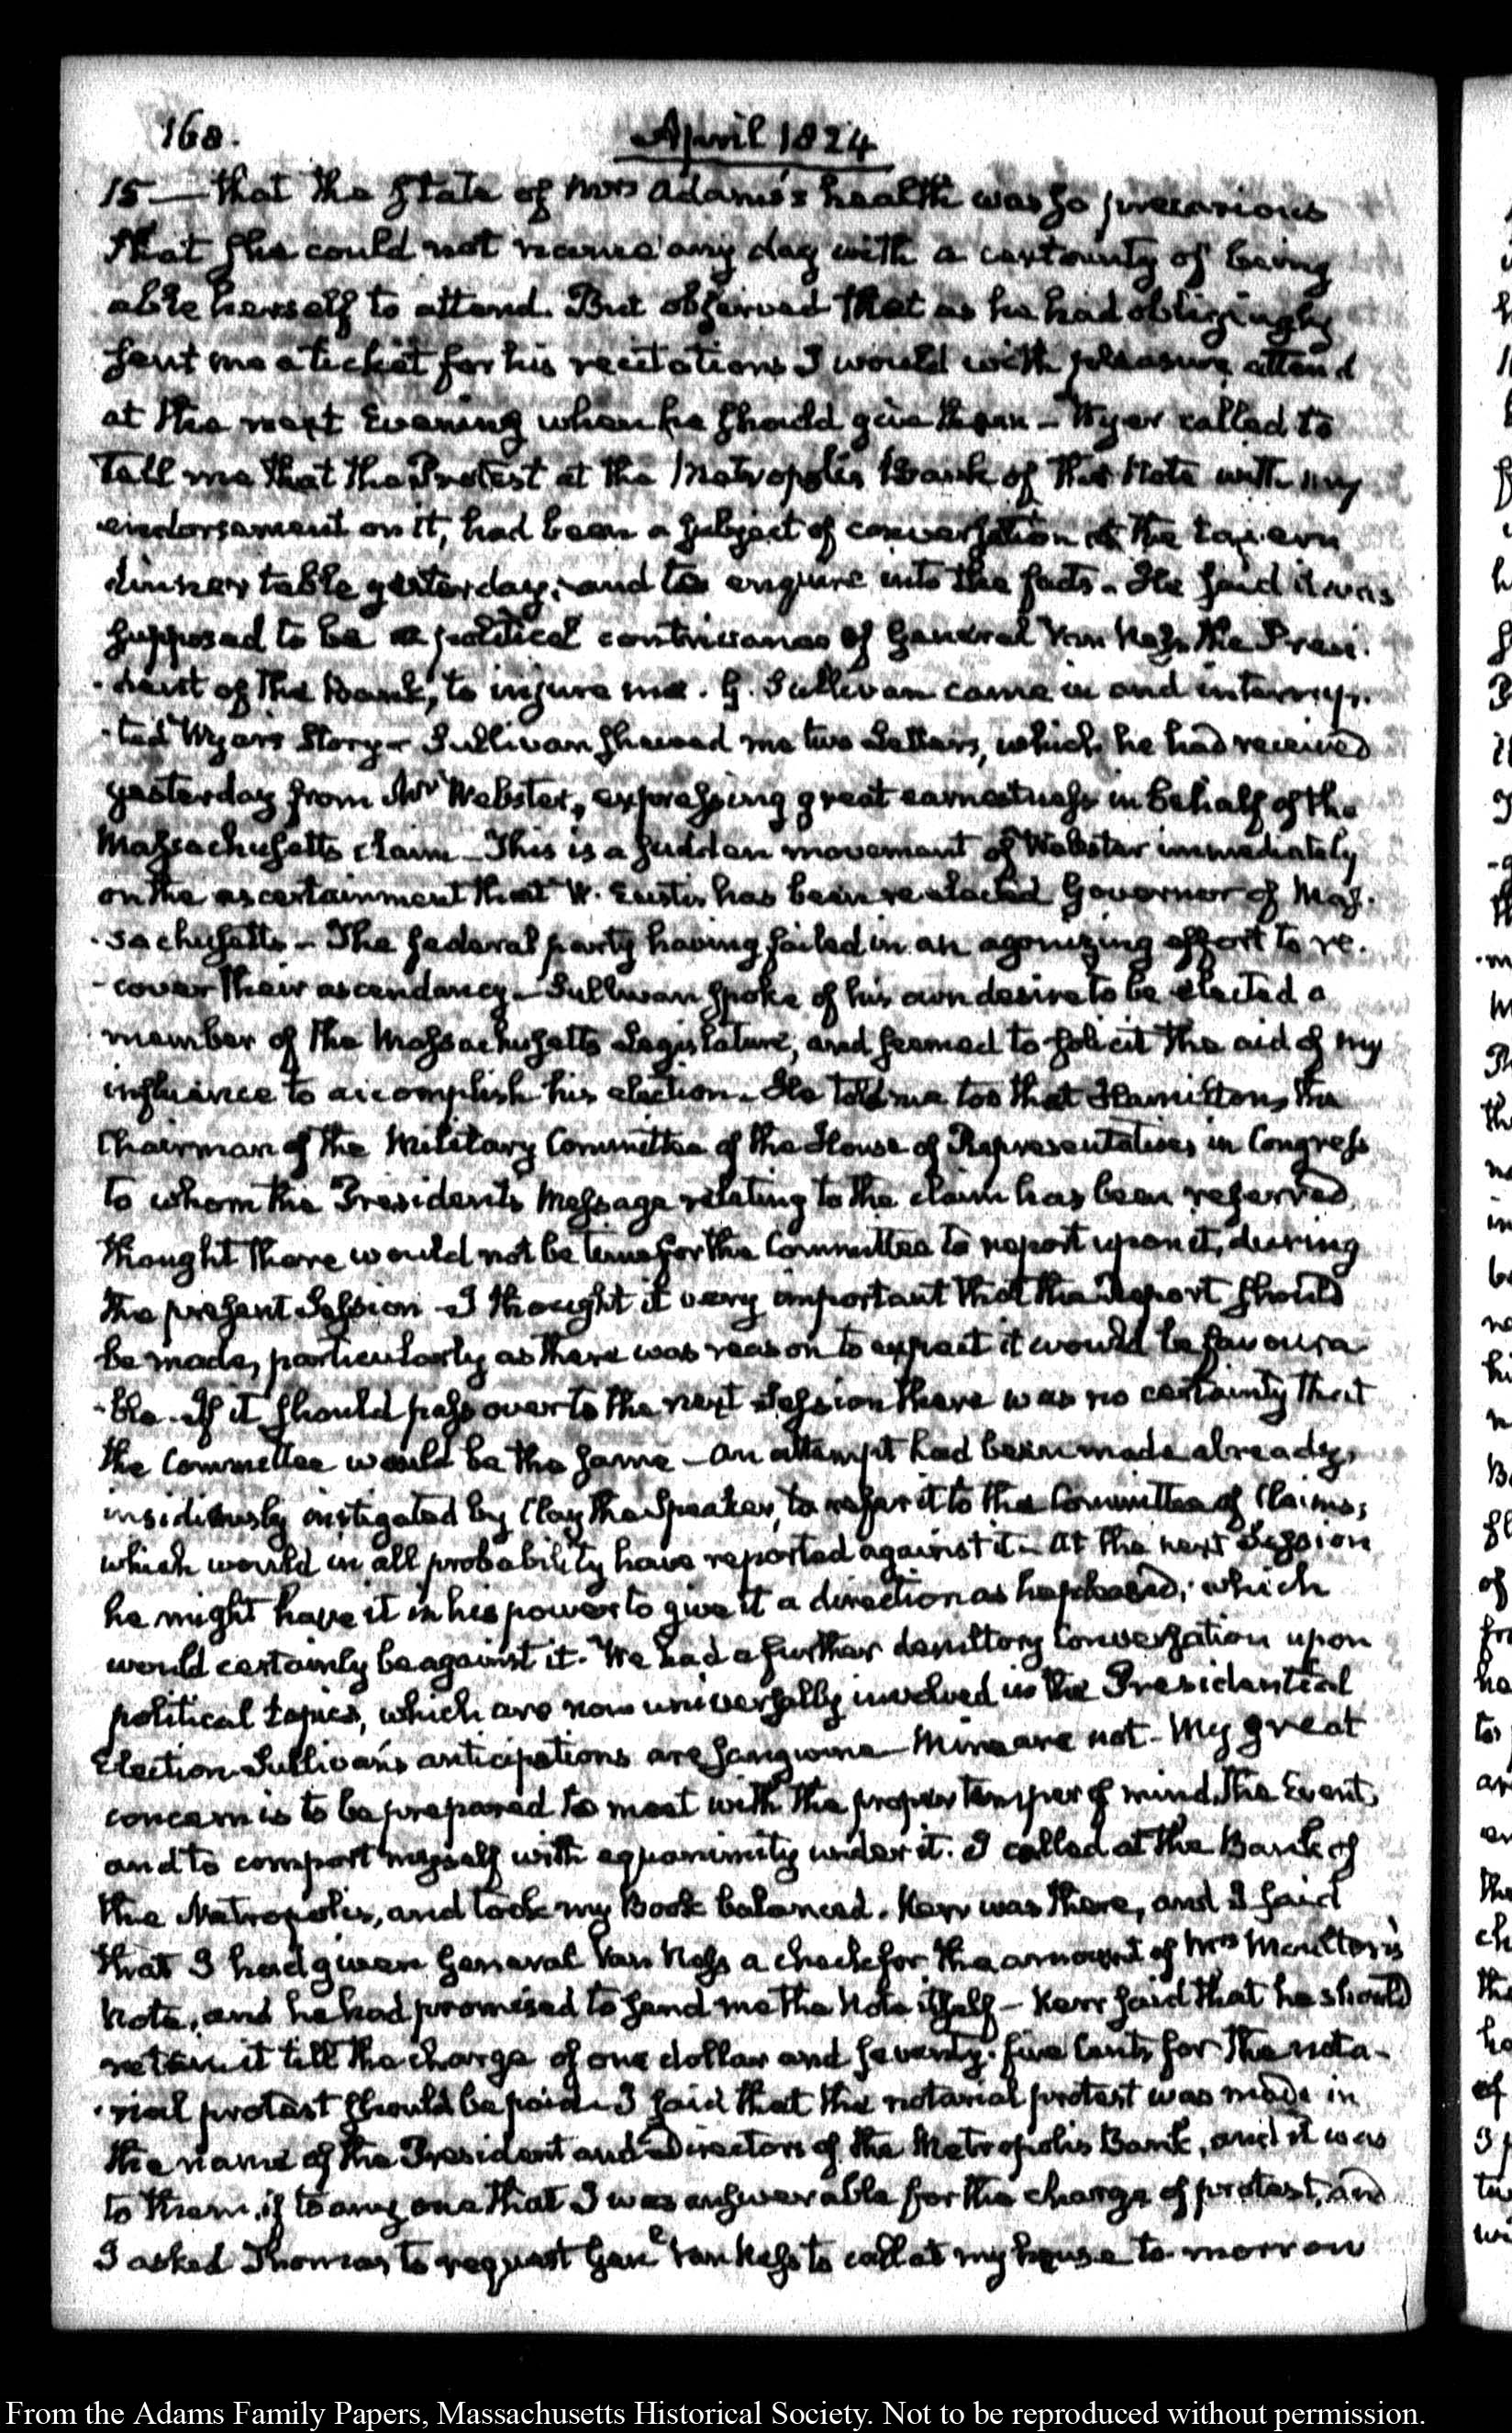 168.
April 1824
15 — that the state of Mrs Adams's health was so precarious
that she could not name any day with a certainty of being
able herself to attend. But observed that as he had obligingly
sent me a ticket for his recitations I would with pleasure attend
at the next Evening when he should give them — Wyer called to
tell me that the Protest at the Metropolis Bank of the Note with my
endorsement on it, had been a subject of conversation at the tavern
dinner table yesterday, and to enquire into the facts. He said it was
supposed to be a political contrivance of General Van Ness the Presi-
-dent of the Bank, to injure me. G. Sullivan came in and interrup-
-ted Wyer's Story — Sullivan shewed me two Letters, which he had received
yesterday from Mr Webster, expressing great earnestness in behalf of the
Massachusetts claim — This is a sudden movement of Webster immediately
on the ascertainment that W. Eustis has been re-elected Governor of Mas-
-sachusetts — The federal party having failed in an agonizing effort to re-
-cover their ascendancy — Sullivan spoke of his own desire to be elected a
member of the Massachusetts Legislature, and seemed to solicit the aid of my
influence to accomplish his election. He told me too that Hamilton, the
Chairman of the Military Committee of the House of Representatives in Congress
to whom the President's Message relating to the claim has been referred,
thought there would not be time for the Committee to report upon it, during
the present Session — I thought it very important that the Report should
be made, particularly as there was reason to expect it would be favoura-
-ble. If it should pass over to the next Session there was no certainty that
the Committee would be the same — An attempt had been made already,
insidiously instigated by Clay the Speaker, to refer it to the Committee of Claims;
which would in all probability have reported against it — At the next Session
he might have it in his power to give it a direction as he pleased; which
would certainly be against it. We had a further desultory Conversation upon
political topics, which are now universally involved in the Presidential
Election. Sullivan's anticipations are sanguine — Mine are not — My great
concern is to be prepared to meet with the proper temper of mind, the Event,
and to comport myself with equanimity under it. I called at the Bank of
the Metropolis, and took my Book balanced. Kerr was there, and I said
that I had given General Van Ness a check for the amount of Mrs Moulton's
Note, and he had promised to send me the Note itself — Kerr said that he should
retain it till the charge of one dollar and seventy-five Cents for the nota-
-rial protest should be paid — I said that the notarial protest was made in
the name of the President and Directors of the Metropolis Bank, and it was
to them, if to any one that I was answerable for the charge of protest, and
I asked Thomas to request Genl Van Ness to call at my house to-morrow
From the Adams Family Papers, Massachusetts Historical Society. Not to be reproduced without permission.